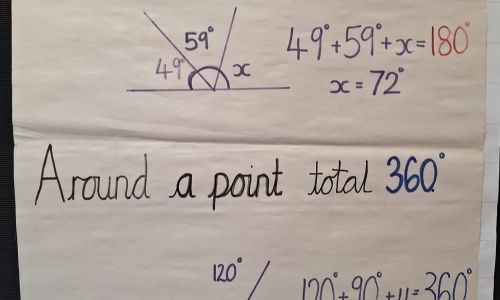 59°
49°
x
49°+59°+x=180°
x=72°
Around a point total 360°
120°
120°+90°+y=360°